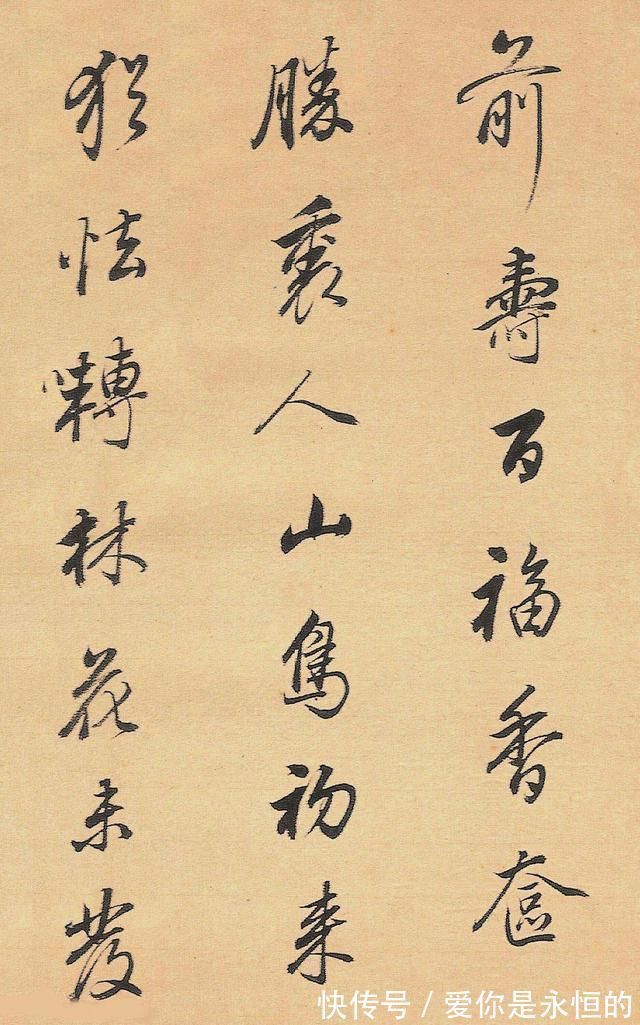 前壽百福香奩
勝裏人山鳥初来
猶怯囀林花未發
快传号 / 爱你是永恒的